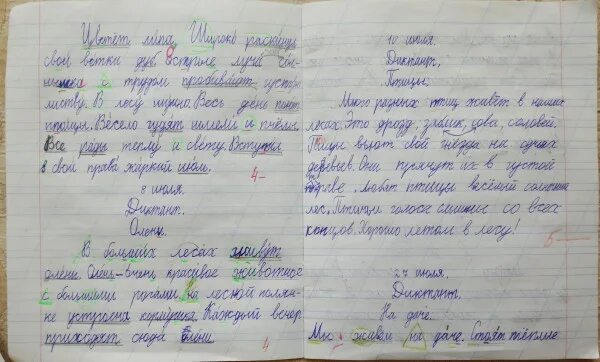 Цветёт липа. Широко раскинул
свои ветки дуб. Острые лучи сол-
нышка с трудом пробивают густую
листву. В лесу шумно. Весь день поют
птицы. Весело гудят шмели и пчёлы.
Все рады теплу и свету. Вступил
в свои права жаркий июль.
4-
8 июля.
Диктант.
Олени.
В больших лесах живут
олени. Олень-очень красивое животное
с большими рогами. На лесной полян-
ке устроена кормушка. Каждый вечер
приходят сюда олени.
4
10 июля.
Диктант.
Птицы.
Много разных птиц живёт в наших
лесах. Это дрозд, зяблик, сова, соловей.
Птицы вьют свои гнёзда на сучьях
деревьев. Они прячут их в густой
траве. Любят птицы весёлый солнечный
лес. Птичьи голоса слышны со всех
концов. Хорошо летом в лесу!
5-
27 июля.
Диктант.
На даче.
Мы живём на даче. Стоят тёплые